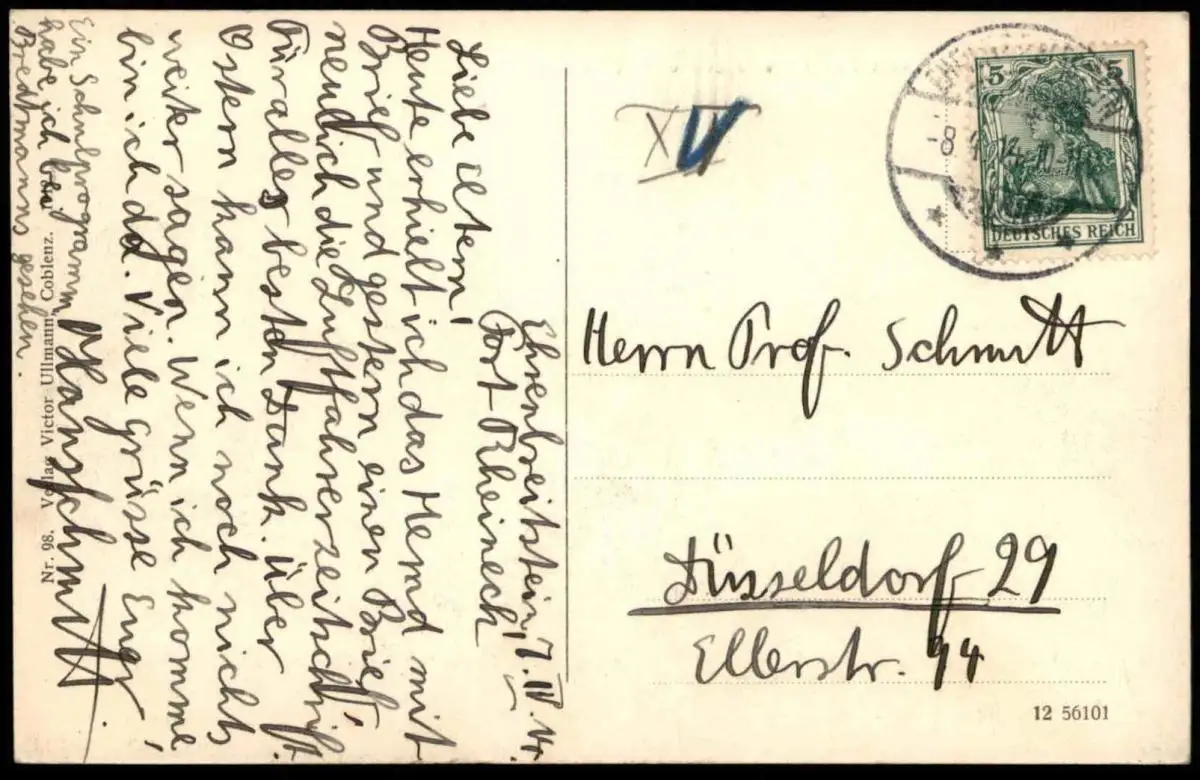 Ehrenbreitstein, 7. IV. 14.
Fort Rheineck
Liebe Eltern!
Heute erhielt ich das Hemd mit
Brief und gestern einen Brief,
neulich die Luftfahrerzeitschrift.
Für alles besten Dank. Über
Ostern kann ich noch nichts
weiter sagen. Wenn ich komme,
bin ich da. Viele grüsse Euer
Hans Schmitt
Ein Schulprogramm
habe ich bei
Bredtmanns gesehen.
Nr. 98. Verlag Victor Ullmann, Coblenz.
5 5
DEUTSCHES REICH
8 4 14
Herrn Prof. Schmitt
Düsseldorf 29
Ellerstr. 94
12 56101